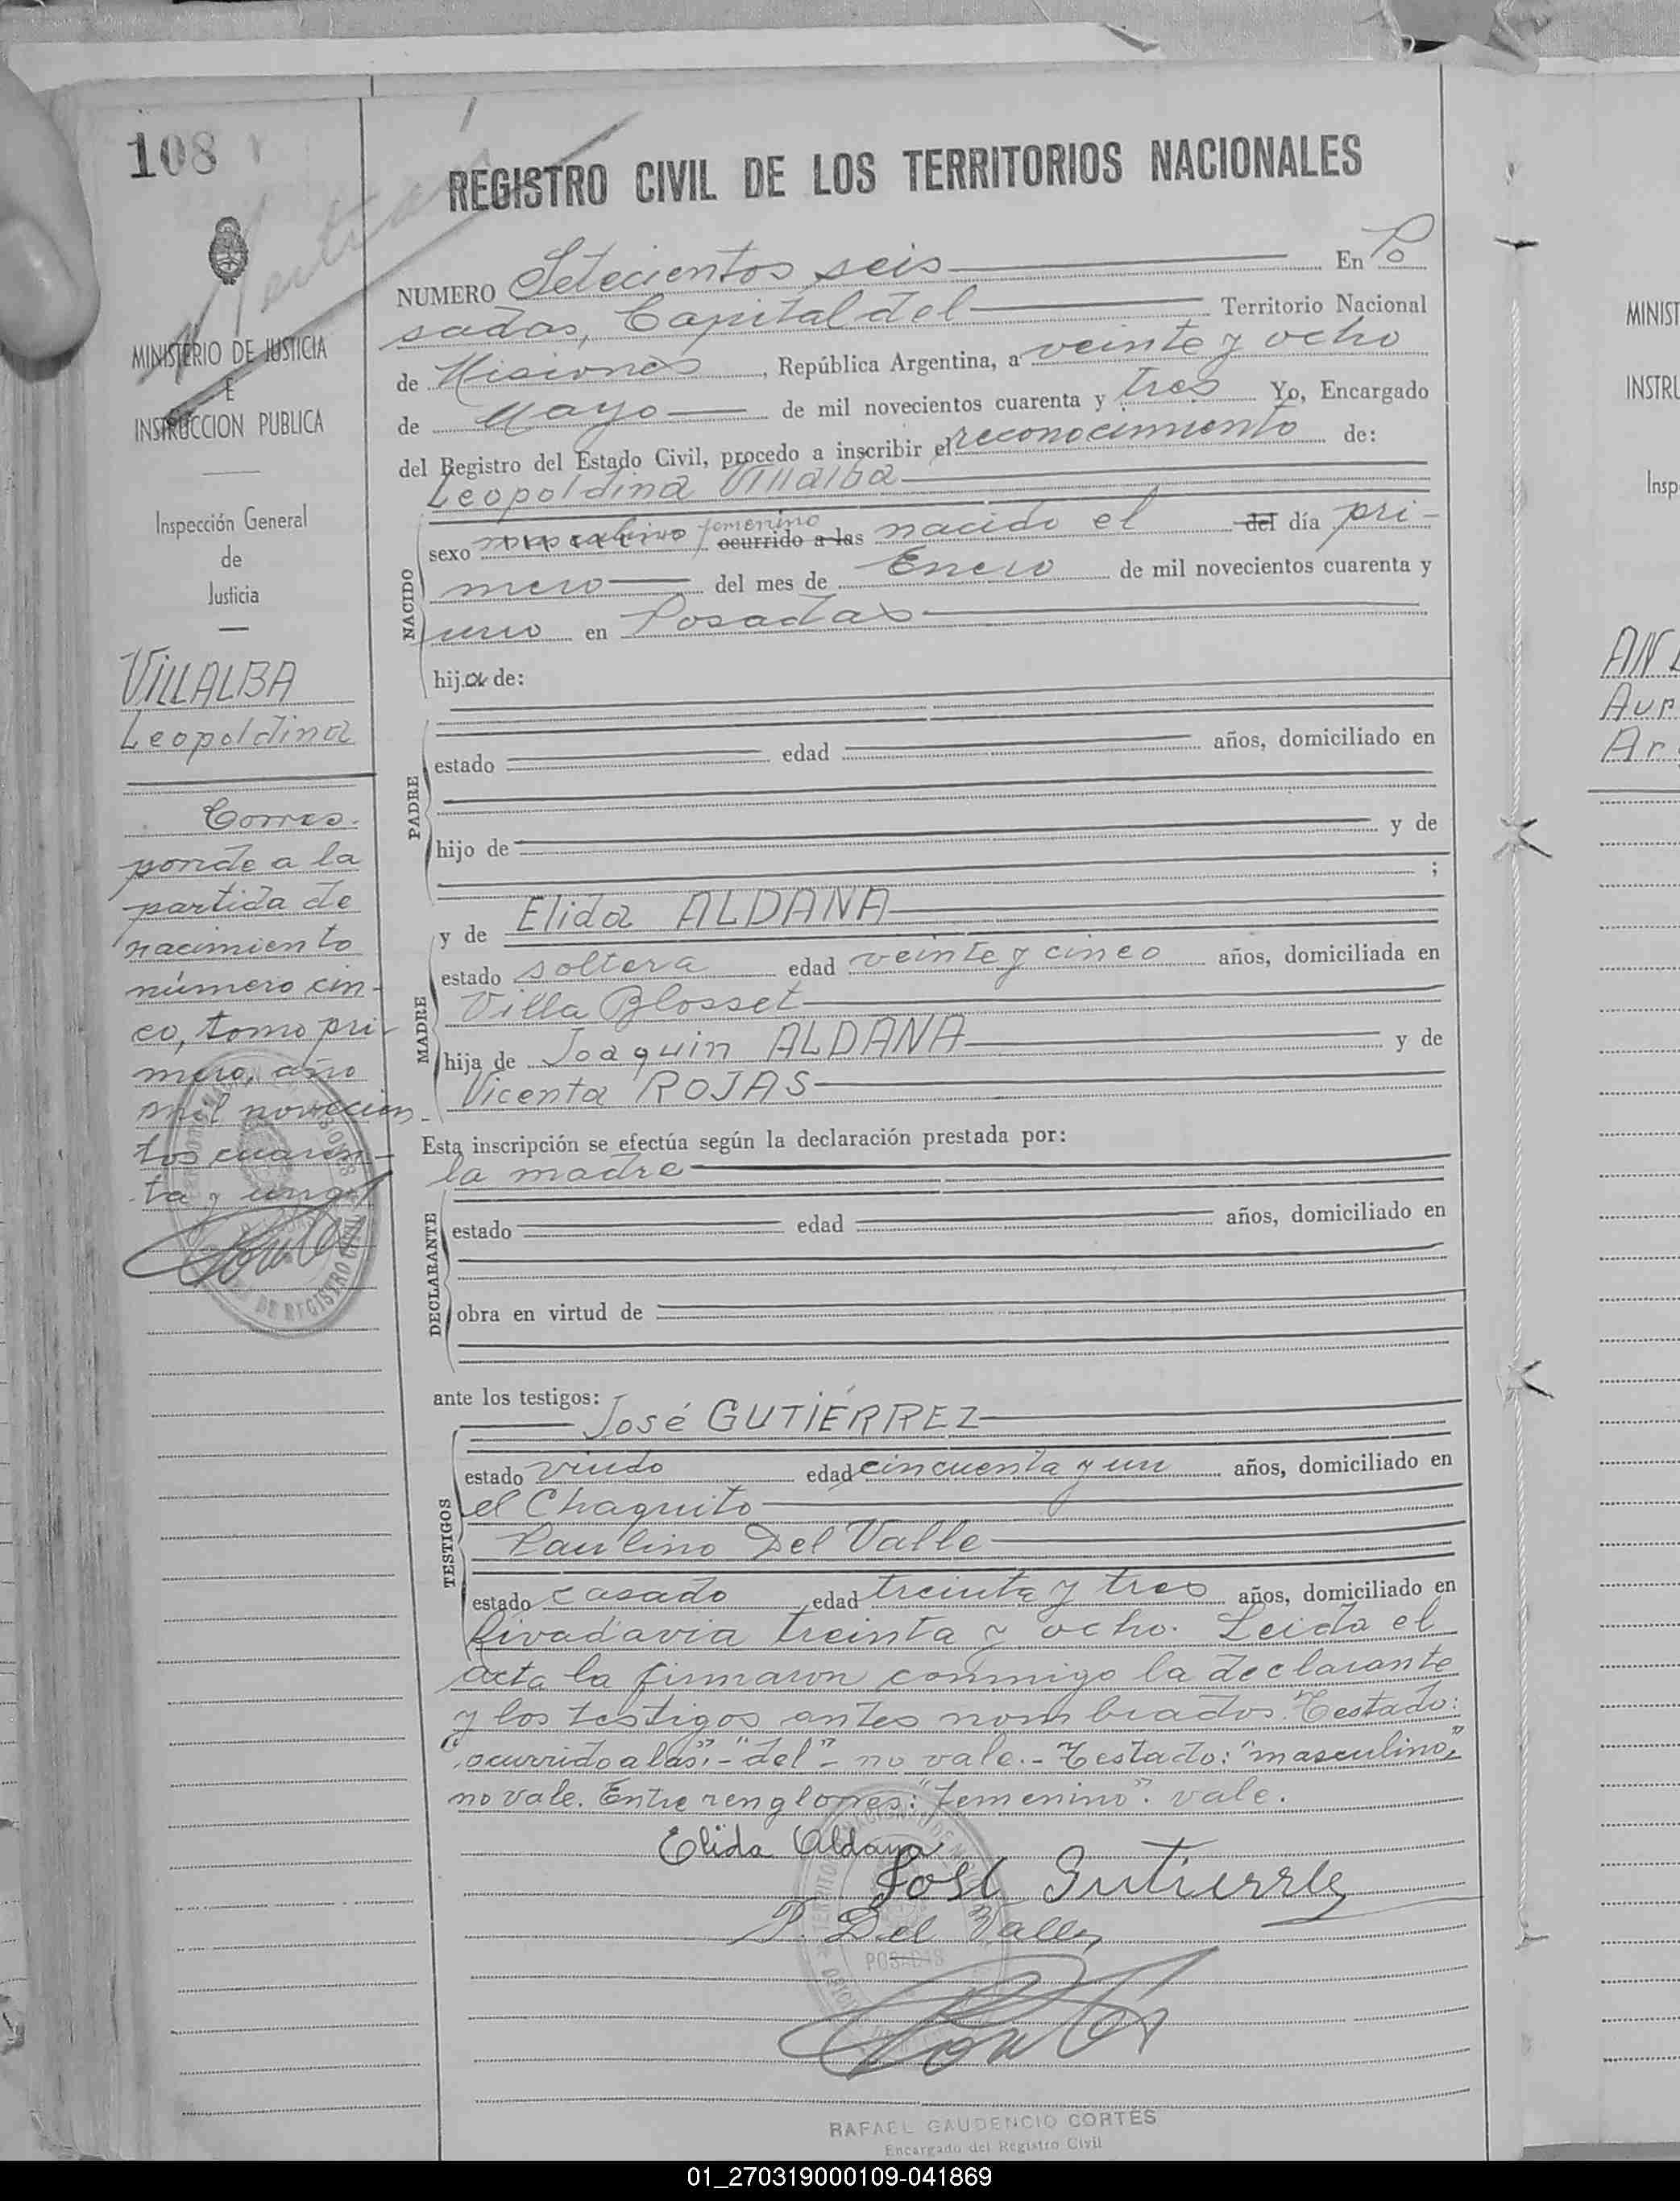 108
REGISTRO CIVIL DE LOS TERRITORIOS NACIONALES
MINISTERIO DE JUSTICIA
E
INSTRUCCION PUBLICA
Inspección General
de
Justicia
VILLALBA
Leopoldina
Corres-
ponde a la
partida de
nacimiento
número cin-
co, tomo pri-
mero, año
mil novecien-
tos cuaren-
ta y uno
NUMERO Setecientos seis En Po
sadas, Capital del Territorio Nacional
de Misiones, República Argentina, a veinte y ocho
de Mayo de mil novecientos cuarenta y tres Yo, Encargado
del Registro del Estado Civil, procedo a inscribir el reconocimiento de:
Leopoldina Villalba
NACIDO
femenino
sexo masculino ocurrido a las nacido el del día pri-
mero del mes de Enero de mil novecientos cuarenta y
uno en Posadas
hija de:
PADRE
estado edad años, domiciliado en
hijo de y de
;
MADRE
y de Elida ALDANA
estado soltera edad veinte y cinco años, domiciliada en
Villa Blosset
hija de Joaquin ALDANA y de
Vicenta ROJAS
Esta inscripción se efectúa según la declaración prestada por:
la madre
DECLARANTE
estado edad años, domiciliado en
obra en virtud de
ante los testigos:
José GUTIÉRREZ
TESTIGOS
estado viudo edad cincuenta y un años, domiciliado en
el Chaquito
Paulino Del Valle
estado casado edad treinta y tres años, domiciliado en
Rivadavia treinta y ocho. Leida el
acta la firmaron conmigo la declarante
y los testigos antes nombrados. Testado:
"ocurrido a las"-"del"- no vale.- Testado: "masculino"
no vale. Entre renglones: "femenino". vale.
Elida Aldana
José Gutierrez
P. Del Valle
POSADAS
RAFAEL GAUDENCIO CORTÉS
Encargado del Registro Civil
MINIST
INSTRU
Insp
AN
Aur
Ar
01_270319000109-041869